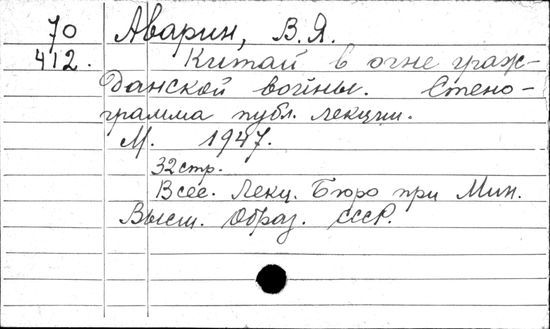 70 Аварин, В.Я.
412. Китай в огне граж-
данской войны. Стено-
грамма публ. лекции.
М. 1947.
32 стр.
Всес. Лекц. Бюро при Мин.
Высш. Образ. СССР.